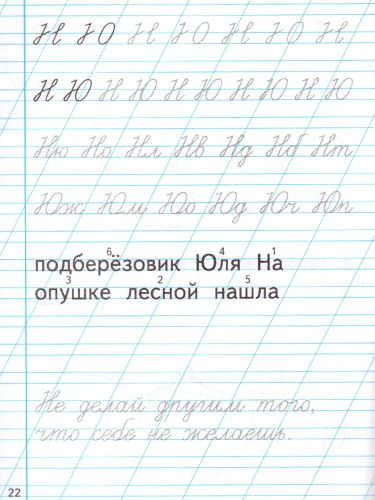 Н Ю Н Ю Н Ю Н
Н Ю Н Ю Н Ю Н Ю Н Ю
Ню Но Нл Нв Нд Нб Нт
Юж Юм Юо Юд Юч Юп
6 4 1
подберёзовик Юля На
3 2 5
опушке лесной нашла
Не делай другим того,
что себе не желаешь.
22